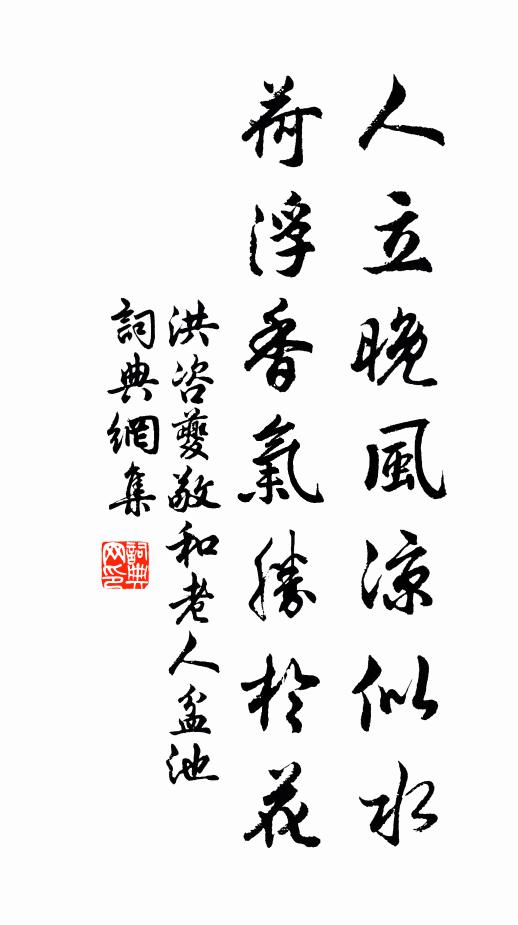 人立晚風凉似水
荷浮香氣勝於花
洪咨夔敬和老人盆池
詞典網集
詞典网印